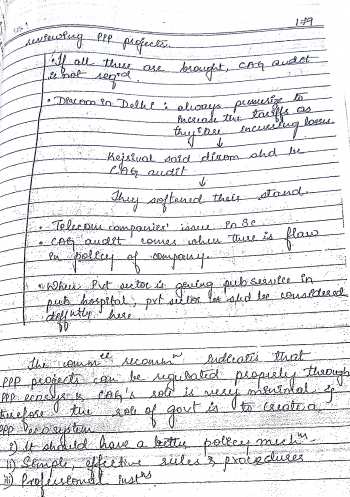 179
reviewing PPP projects.
• If all three are brought, CAG audit
is not reqd.
• Discom in Delhi : always pressurize to
increase the tariffs as
they're incurring losses
↓
Kejrival said discom shd be
CAG audit
↓
They softened their stand.
• Telecom companies' issue in SC
• CAG audit comes when there is flaw
in policy of company.
• When Pvt sector is giving pub service in
pub hospital, pvt sector shd be considered
diffntly here
The comm ee recomm n indicates that
PPP projects can be regulated properly through
PPP ecosys & CAG's role is very minimal &
therefore the role of govt is to create a
PPP ecosystem
i) It should have a better policy mech ms
ii) Simple, effective rules & procedures
iii) Professional inst ns